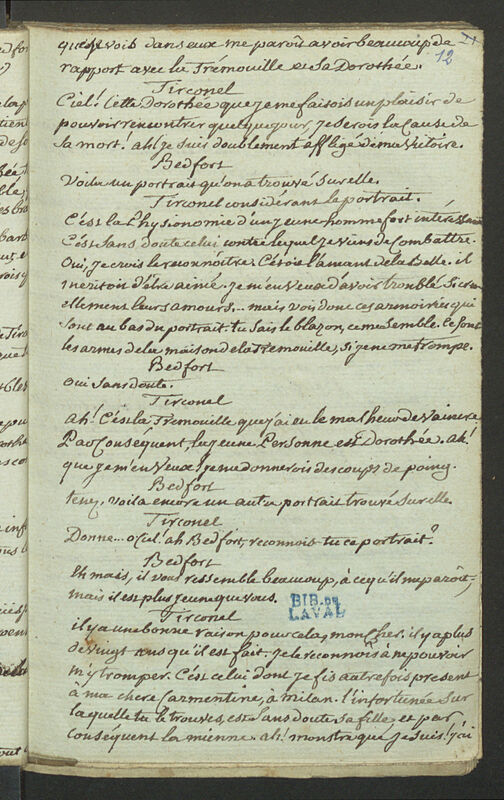 12
que je vois dans eux me paroît avoir beaucoup de
rapport avec la Trémouille et sa Dorothée.
Tirconel
Ciel! Cette Dorothée que je me faisois un plaisir de
pouvoir rencontrer quelque jour, je serois la cause de
sa mort. ah! je suis doublement affligé de ma victoire.
Bedfort
Voila un portrait qu'on a trouvé sur elle.
Tirconel considerant le portrait.
C'est la Physionomie d'un jeune homme fort intéressant
C'est sans doute celui contre lequel je viens de combattre.
Oui, je crois le reconnoître. C'étoit l'amant de la Belle. il
meritoit d'être aimé. je m'en veux d'avoir troublé si cru-
ellement leurs amours... mais vois donc ces armoiries qui
sont au bas du portrait. tu sais le blazon, ce me semble. Ce sont
les armes de la maison de la Tremouille, si je ne me trompe.
Bedfort
Oui sans doute.
Tirconel
ah! C'est la Tremouille que j'ai eu le malheur de vaincre
Par Consequent, la jeune Personne est Dorothée. ah!
que je m'en veux! je me donnerois des coups de poing.
Bedfort
tenez, voila encore un autre portrait trouvé sur elle
Tirconel
Donne... o Ciel! ah Bedfort, reconnois-tu ce portrait?
Bedfort
Eh mais, il vous ressemble beaucoup, à ce qu'il me paroît,
mais il est plus jeune que vous.
BIB. DE
LAVAL
Tirconel
il y a une bonne raison pour cela, mon cher. il y a plus
de vingt ans qu'il est fait. je le reconnois à ne pouvoir
m'y tromper. C'est celui dont je fis autrefois present
à ma chere Carmentine, à milan. l'infortunée sur
laquelle tu le trouves, est sans doute sa fille, et par
consequent la mienne. ah! monstre que je suis! j'ai